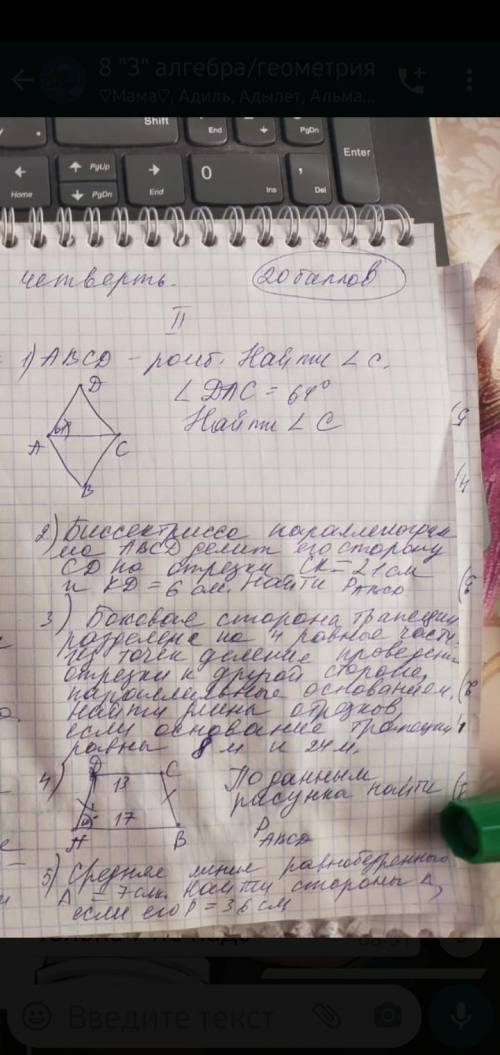 8 "З" алгебра/геометрия
♡Мама♡, Адиль, Адылет, Альма...
Shift
End
PgDn
Enter
Home
PgUp
PgDn
End
0
Ins
Del
четверть.
20 баллов
II
1) ABCD – ромб. Найти ∠C.
∠DAC = 64°
Найти ∠C
D
A
C
B
2) Биссектрисса параллелограм
ма ABCD делит его сторону
CD на отрезки CK = 21 см
и KD = 6 см. Найти P ABCD
3) Боковая сторона трапеции
разделена на 4 равные части.
Из точек деления проведены
отрезки к другой стороне,
параллельные основанием.
Найти длины отрезков,
если основание трапеции
равны 8 м и 24 м.
4)
D
C
13
17
A
B
По данным
рисунка найти
P ABCD
5) Средняя линия равнобедренного
Δ = 7 см. Найти стороны Δ,
если его P = 36 см
Введите текст